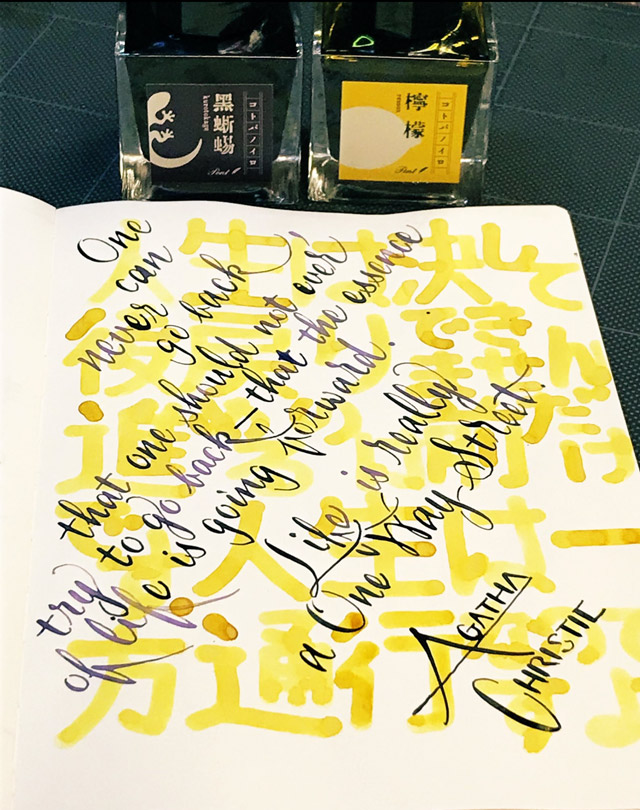 黒蜥蜴
kurotokage
コトバノイロ
Pent
檸檬
remon
コトバノイロ
Pent
One
never can
go back,
that one should not ever
try to go back — that the essence
of life is going forward.
Life is really
a One Way Street.
AGATHA
CHRISTIE
人生は決して
後戻りできません
進 前だけ
人生は一
方通行